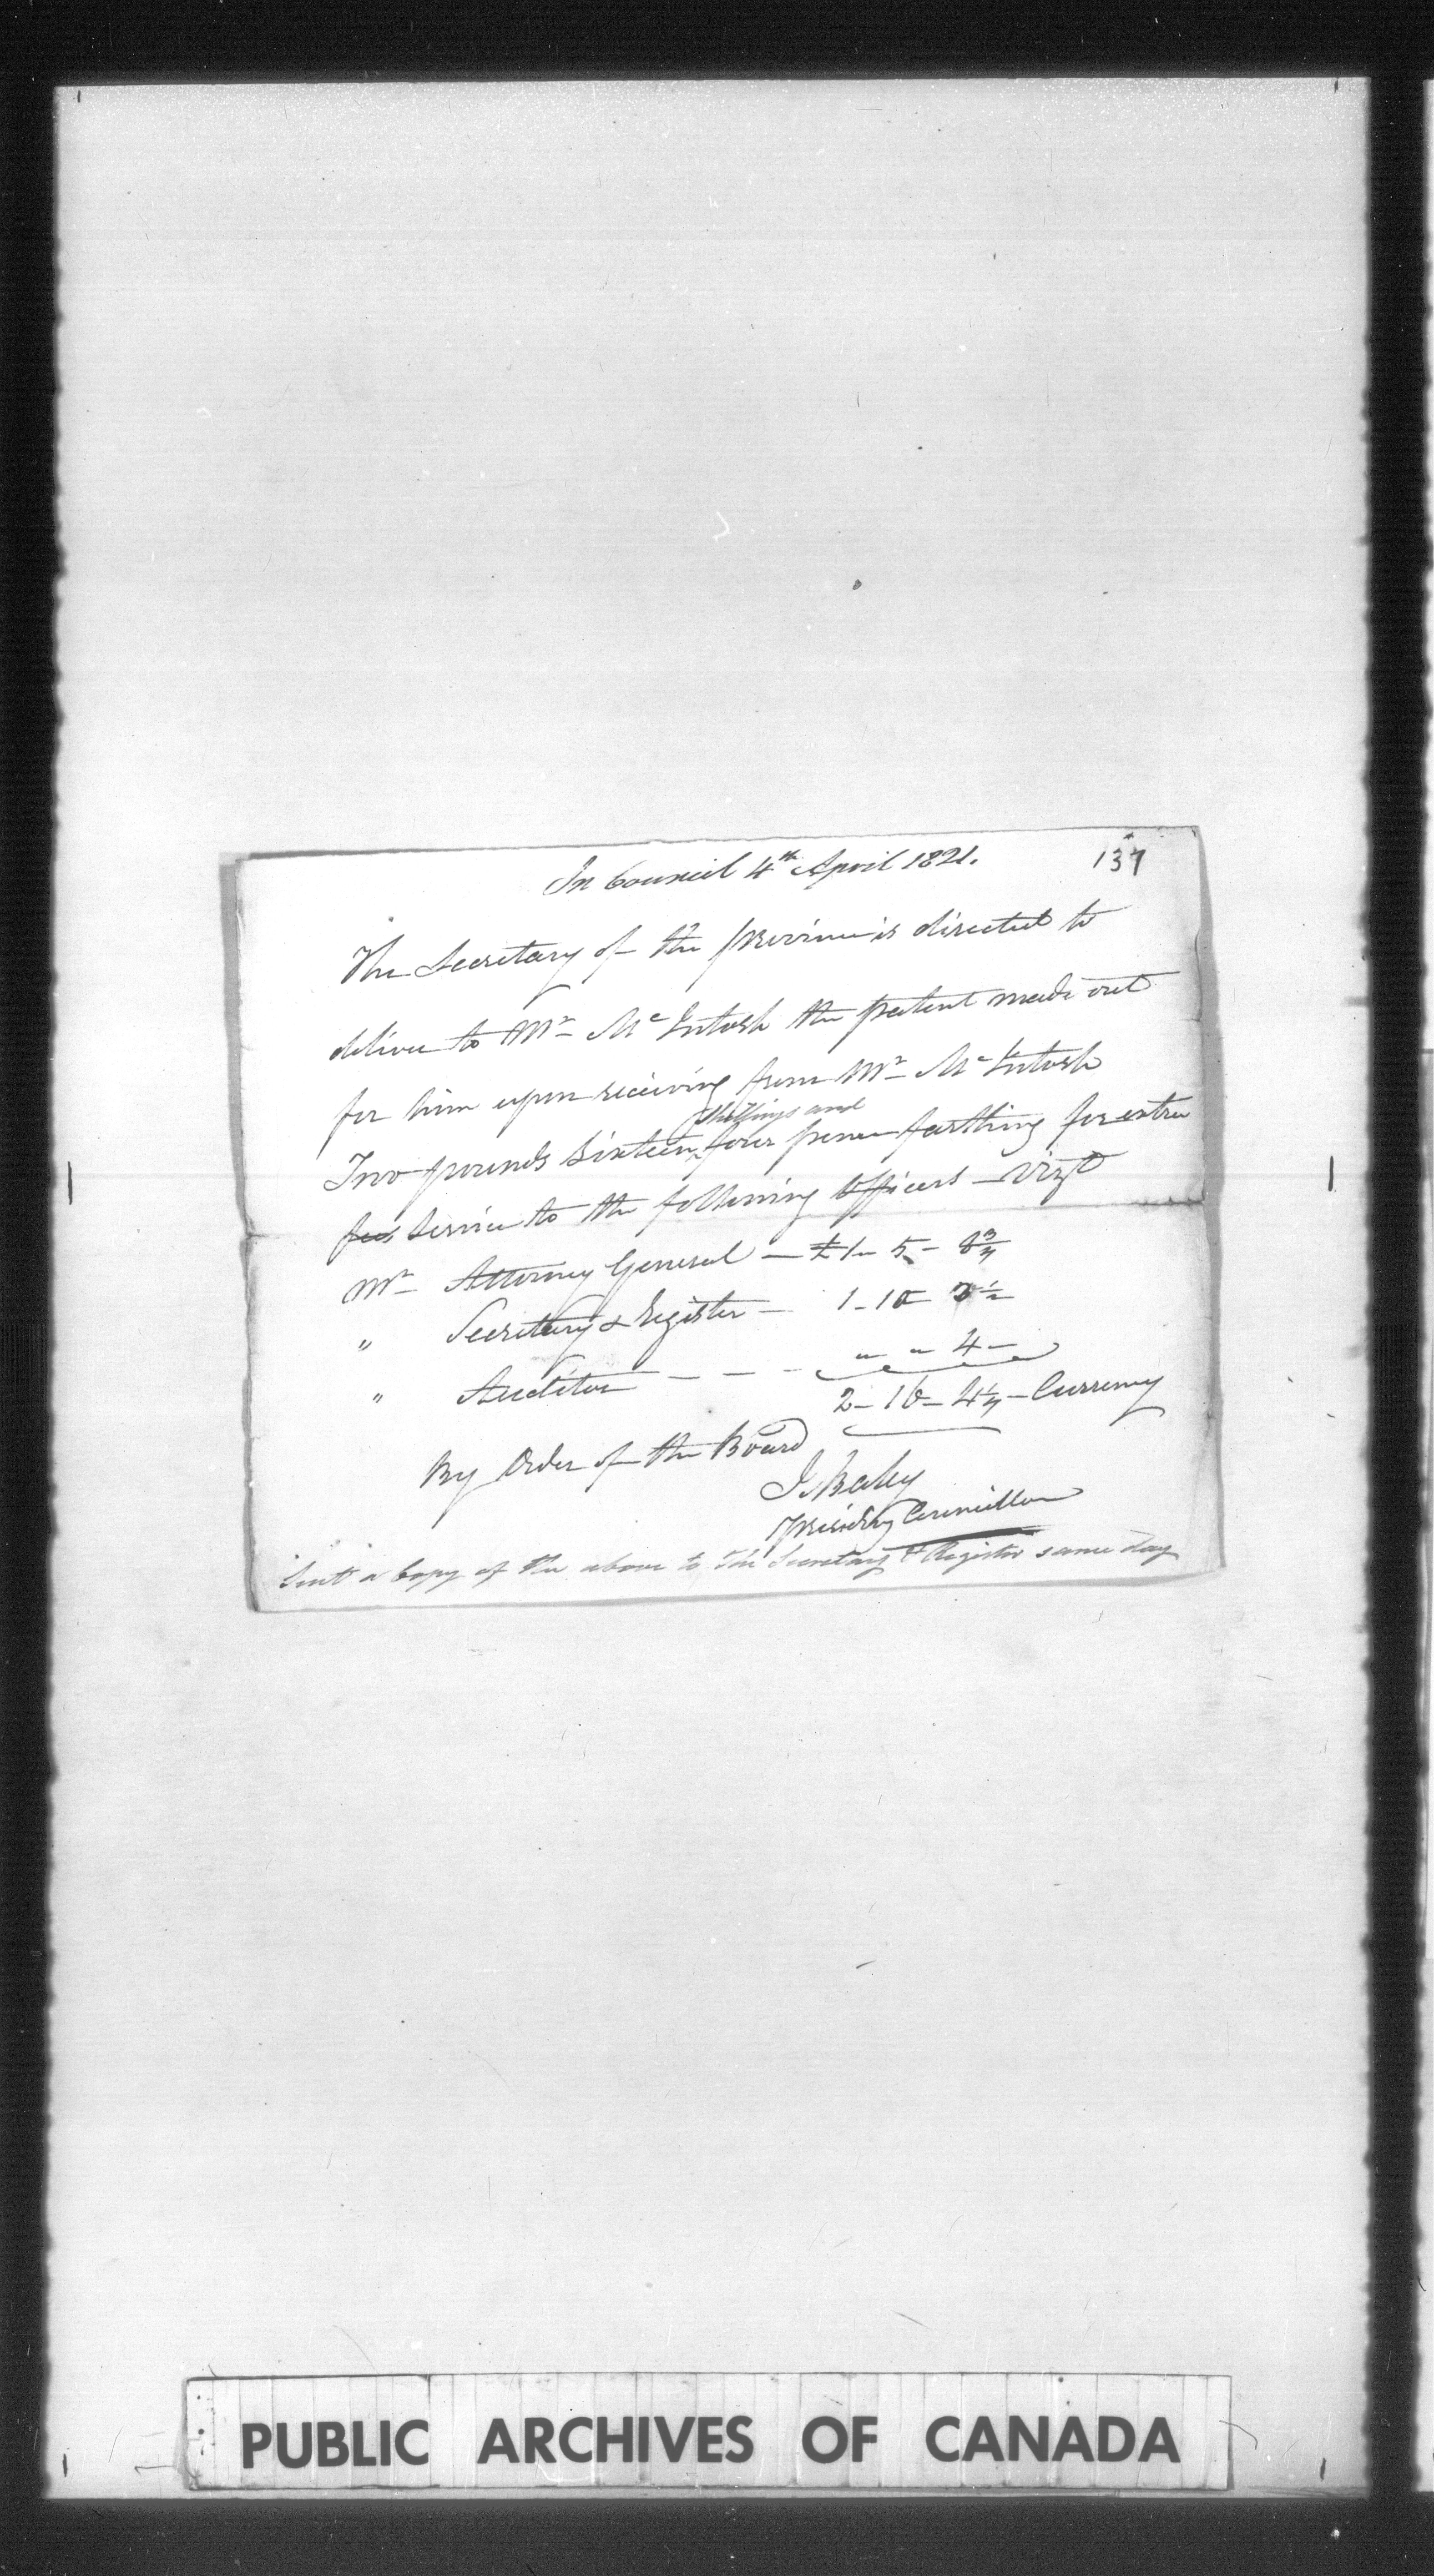 137
In Council 4th April 1821.
The Secretary of the province is directed to
deliver to Mr McIntosh the patent made out
for him upon receiving from Mr McIntosh
shillings and
Two pounds sixteen ^ four pence farthing for extra
fees service to the following Officers – Vizt
Mr Attorney General – £1 – 5 – 8¾
" Secretary & Register – 1 – 10 –
" Auditor – – – " – " – 4 –
2 – 16 – 4¼ – Currency
By Order of the Board
J. Baby
Presiding Councillor
Sent a Copy of the above to the Secretary & Register same day
PUBLIC ARCHIVES OF CANADA